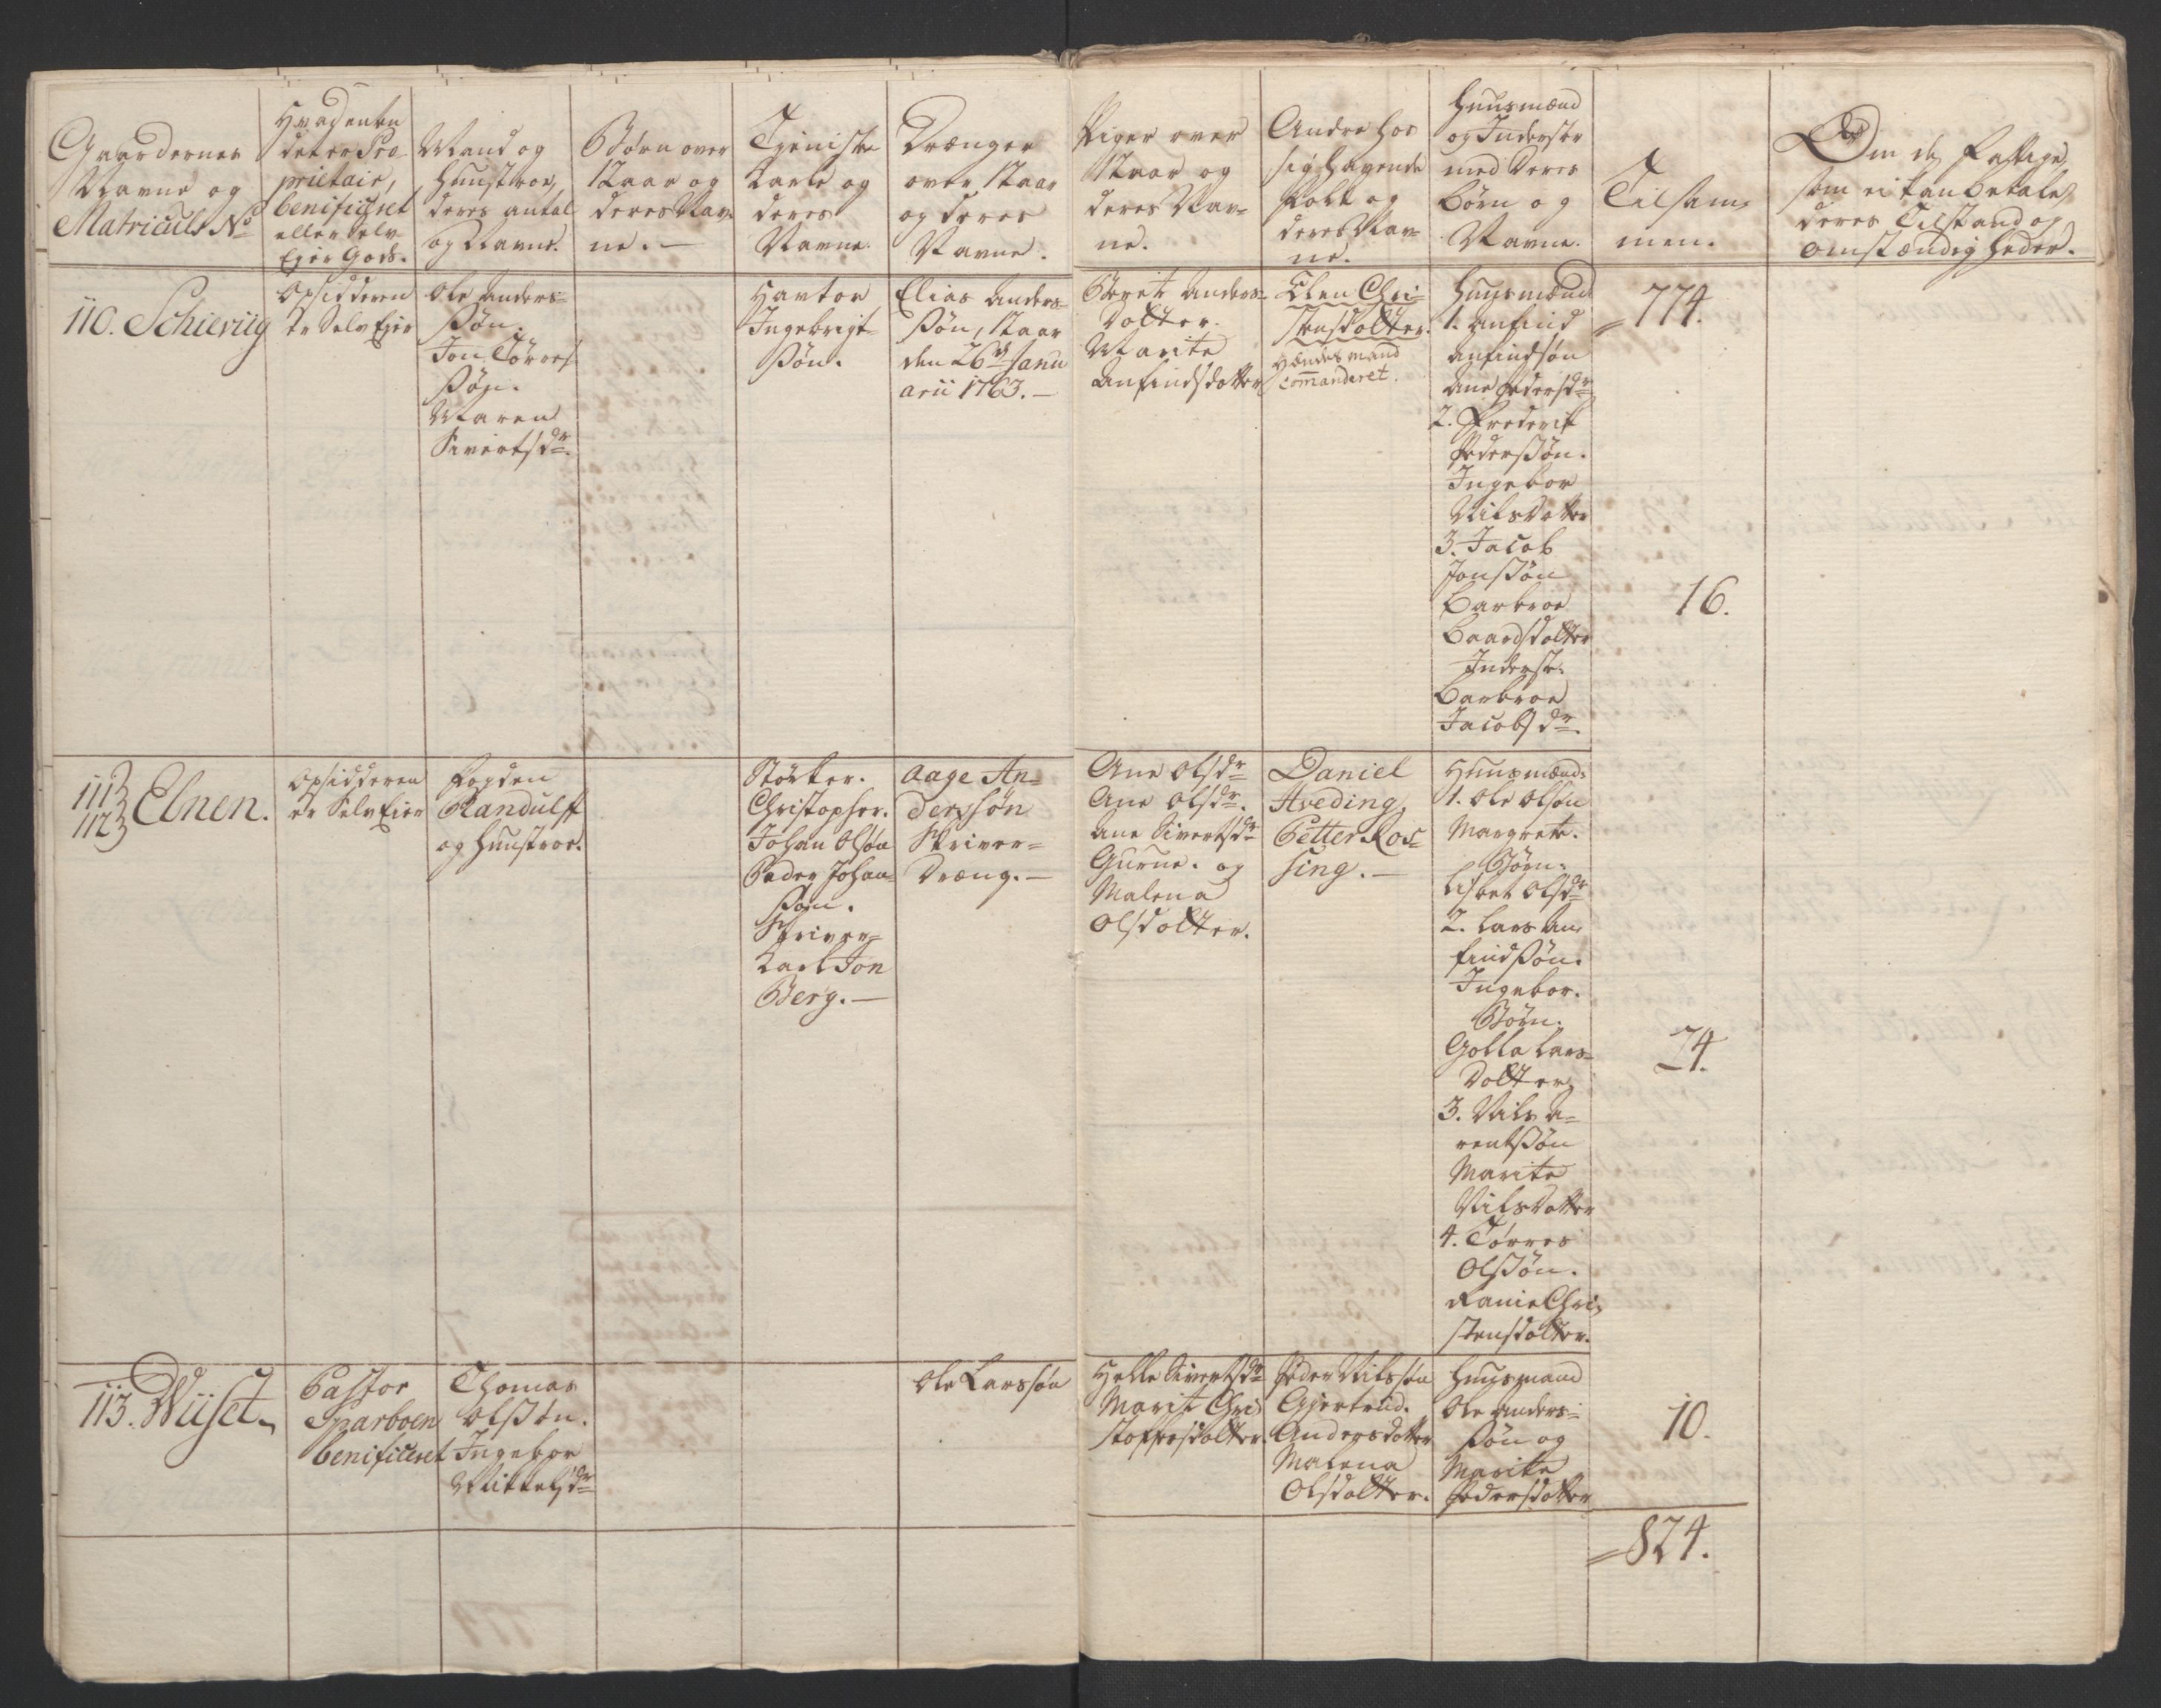 Gaardernes
Navne og
Matriculs No
Hvad enten
det er Pro
prietair,
benificeret
eller Selv
Ejer Gods.
Mand og
Hunstroe,
deres antal
og Navne.
Børn over
12 Aar og
deres Nav-
ne. —
Tjeniste
Karle og
deres
Navne.
Drænger
over 12 Aar
og deres
Navne.
Piger over
12 Aar og
deres Nav-
ne.
Andre hos
sig havende
Folk og
deres Nav-
ne.
Huusmænd
og Inderster
med deres
Børn og
Navne.
Tilsam-
men.
Om de Fattige,
som ei kan betale,
deres Tilstand og
omstændigheder.
110. Schierüg
Opsidderen
er Selv Ejer
Ole Anders-
søn.
Jon Tørres
søn.
Maren
Sivertsdr.
Havtor
Ingebrigt
søn.
Elias Anders-
søn, 12 Aar
den 26de Janu
arii 1763. —
Berit Anders-
datter.
Marite
Anfindsdatter
Elen Chri-
stensdatter.
Hendes mand
commanderet.
Huusmænd
1. Anfind
Anfindsøn
Ane Pedersdr
2. Frederik
Pedersøn.
Ingebor
Nilsdatter
3. Jacob
Jonsøn
Barbroe
Baardsdatter
Inderste.
Barbroe
Jacobsdr.
774.
16.
111
112 Elnen.
Opsidderen
er Selv Eier
Fogden
Randulff
og Hunstroe.
Størker.
Christopher.
Johan Olsøn
Peder Johan-
søn.
Skriver-
Karl Jon
Berg. —
Aage An-
dersøn
Skriver-
Dræng. —
Ane Olsdr
Ane Olsdr.
Ane Sivertsdr
Gurne. og
Malena
Olsdatter.
Daniel
Aveding,
Petter Ros-
sing. —
Huusmænd
1. Ole Olsøn
Margrete.
Børn.
Lisbet Olsdr
2. Lars An-
findsøn.
Ingebor.
Børn.
Golla Lars-
datter,
3. Nils A-
rentsøn
Marite
Nilsdatter
4. Tørres
Olsøn.
Ranie Chri-
stensdatter.
24.
113. Wüset.
Pastor
Sparboen
benificeret
Thomas
Olsøn.
Ingebor
Mikkelsdr
Ole Larssøn
Helle Sivertsdr
Marit Chri
stoffersdatter.
Peder Nilssøn
Gjertrud.
Andersdatter
Malena
Olsdatter.
Huusmand
Ole Anders-
søn og
Marite
Pedersdatter
10.
824.